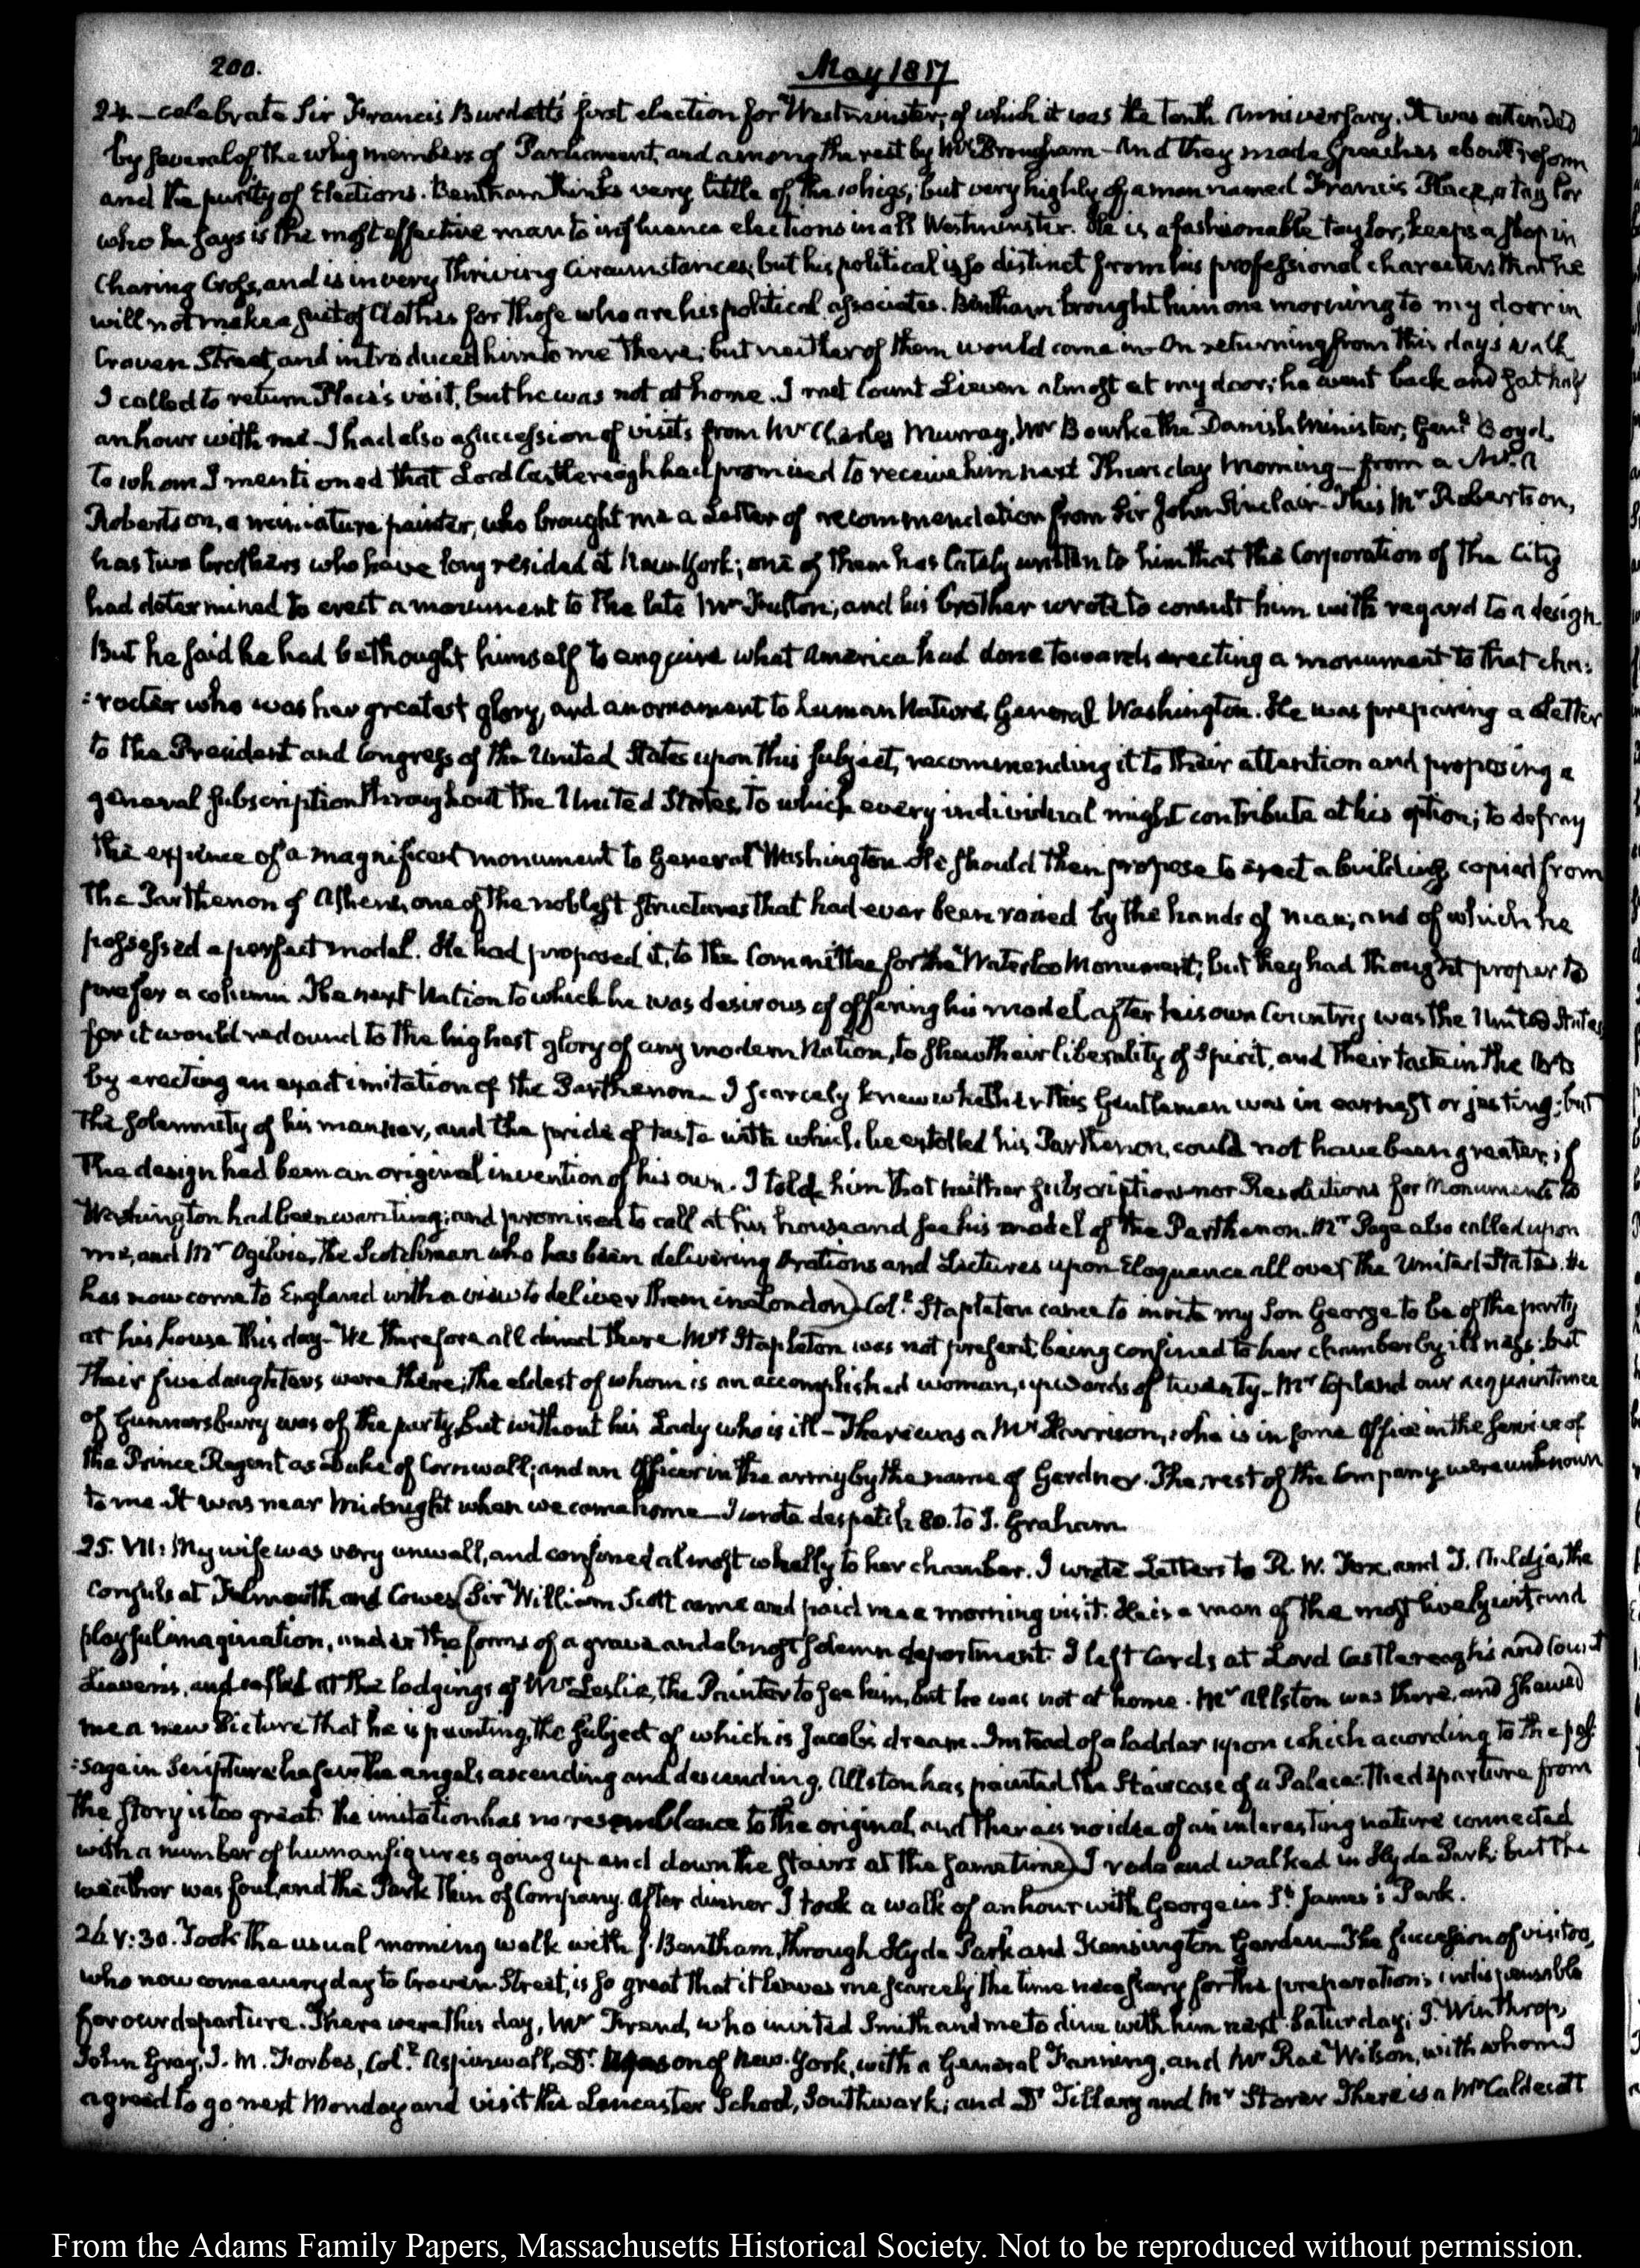 200.
May 1817
24 — celebrate Sir Francis Burdett's first election for Westminster; of which it was the tenth Anniversary. It was attended
by several of the whig members of Parliament, and among the rest by Mr Brougham — And they made speeches about reform
and the purity of Elections. Bentham thinks very little of the whigs; but very highly of a man named Francis Place, a taylor
who he says is the most effective man to influence elections in all Westminster. He is a fashionable taylor, keeps a shop in
Charing Cross, and is in very thriving Circumstances; but his political is so distinct from his professional character, that he
will not make a suit of Clothes for those who are his political associates. Bentham brought him one morning to my door in
Craven Street, and introduced him to me there; but neither of them would come in. On returning from this day's walk
I called to return Place's visit, but he was not at home. I met Count Lieven almost at my door; he went back and sat half
an hour with me — I had also a succession of visits from Mr Charles Murray, Mr Bourke the Danish Minister, Genl. Boyd,
to whom I mentioned that Lord Castlereagh had promised to receive him next Thursday morning — from a Mr A
Robertson, a miniature painter, who brought me a Letter of recommendation from Sir John Sinclair. This Mr Robertson,
has two brothers who have long resided at New York; one of them has lately written to him that the Corporation of the City
had determined to erect a monument to the late Mr Fulton; and his brother wrote to consult him with regard to a design.
But he said he had bethought himself to enquire what America had done towards erecting a monument to that cha:
:racter who was her greatest glory, and an ornament to human Nature, General Washington. He was preparing a Letter
to the President and Congress of the United States upon this subject, recommending it to their attention and proposing a
general subscription throughout the United States, to which every individual might contribute at his option; to defray
the expence of a magnificent monument to General Washington. He should then propose to erect a building copied from
the Parthenon of Athens, one of the noblest structures that had ever been raised by the hands of man; and of which he
possessed a perfect model. He had proposed it, to the Committee for the Waterloo Monument; but they had thought proper to
prefer a column. The next Nation to which he was desirous of offering his model after his own Country was the United States,
for it would redound to the highest glory of any modern Nation, to shew their liberality of Spirit, and their taste in the Arts
by erecting an exact imitation of the Parthenon — I scarcely knew whether this Gentleman was in earnest or jesting; but
the solemnity of his manner, and the pride of taste with which he extolled his Parthenon, could not have been greater, if
the design had been an original invention of his own. I told him that neither subscriptions nor Resolutions for Monuments to
Washington had been wanting; and promised to call at his house and see his model of the Parthenon. Mr Page also called upon
me, and Mr Ogilvie, the Scotchman who has been delivering Orations and Lectures upon Eloquence all over the United States. He
has now come to England with a view to deliver them in London) Col.l Stapleton came to invite my Son George to be of the party
at his house this day — We therefore all dined there Mrs Stapleton was not present, being confined to her chamber by illness; but
their five daughters were there; the eldest of whom is an accomplished woman, upwards of twenty — Mr Copland our acquaintance
of Gunnersbury was of the party, but without his Lady who is ill — There was a Mr Harrison, who is in some Office in the service of
the Prince Regent as Duke of Cornwall; and an Officer in the army by the name of Gardner. The rest of the Company were unknown
to me. It was near Midnight when we came home — I wrote despatch 80. to J. Graham.
25. VII: My wife was very unwell, and confined almost wholly to her chamber. I wrote Letters to R. W. Fox, and T. Auldjo, the
Consuls at Falmouth and Cowes (Sir William Scott came and paid me a morning visit. He is a man of the most lively wit and
playful imagination, under the forms of a grave and almost solemn deportment. I left Cards at Lord Castlereagh's and Count
Lieven's, and called at the lodgings of Mr Leslie, the Painter to see him, but he was not at home. Mr Allston was there, and shewed
me a new Picture that he is painting, the subject of which is Jacob's dream. Instead of a ladder upon which according to the pas:
:sage in Scripture he saw the angels ascending and descending, Allston has painted the Staircase of a Palace. The departure from
the story is too great. the imitation has no resemblance to the original, and there is no idea of an interesting nature connected
with a number of human figures going up and down the stairs at the same time) I rode and walked in Hyde Park; but the
weather was foul, and the Park thin of Company. After dinner I took a walk of an hour with George in St. James's Park.
26. V: 30. Took the usual morning walk with J. Bentham, through Hyde Park and Kensington Garden — The succession of visitors,
who now come every day to Craven Street, is so great that it leaves me scarcely the time necessary for the preparations indispensable
for our departure. There were this day, Mr Frend, who invited Smith and me to dine with him next Saturday; J. Winthrop,
John Gray, J. M. Forbes, Col.l Aspinwall, Dr. of New-York, with a General Fanning, and Mr Rae Wilson, with whom I
agreed to go next Monday and visit the Lancaster School, Southwark; and Dr Tillary and Mr Storer There is a Mr Caldecott
From the Adams Family Papers, Massachusetts Historical Society. Not to be reproduced without permission.